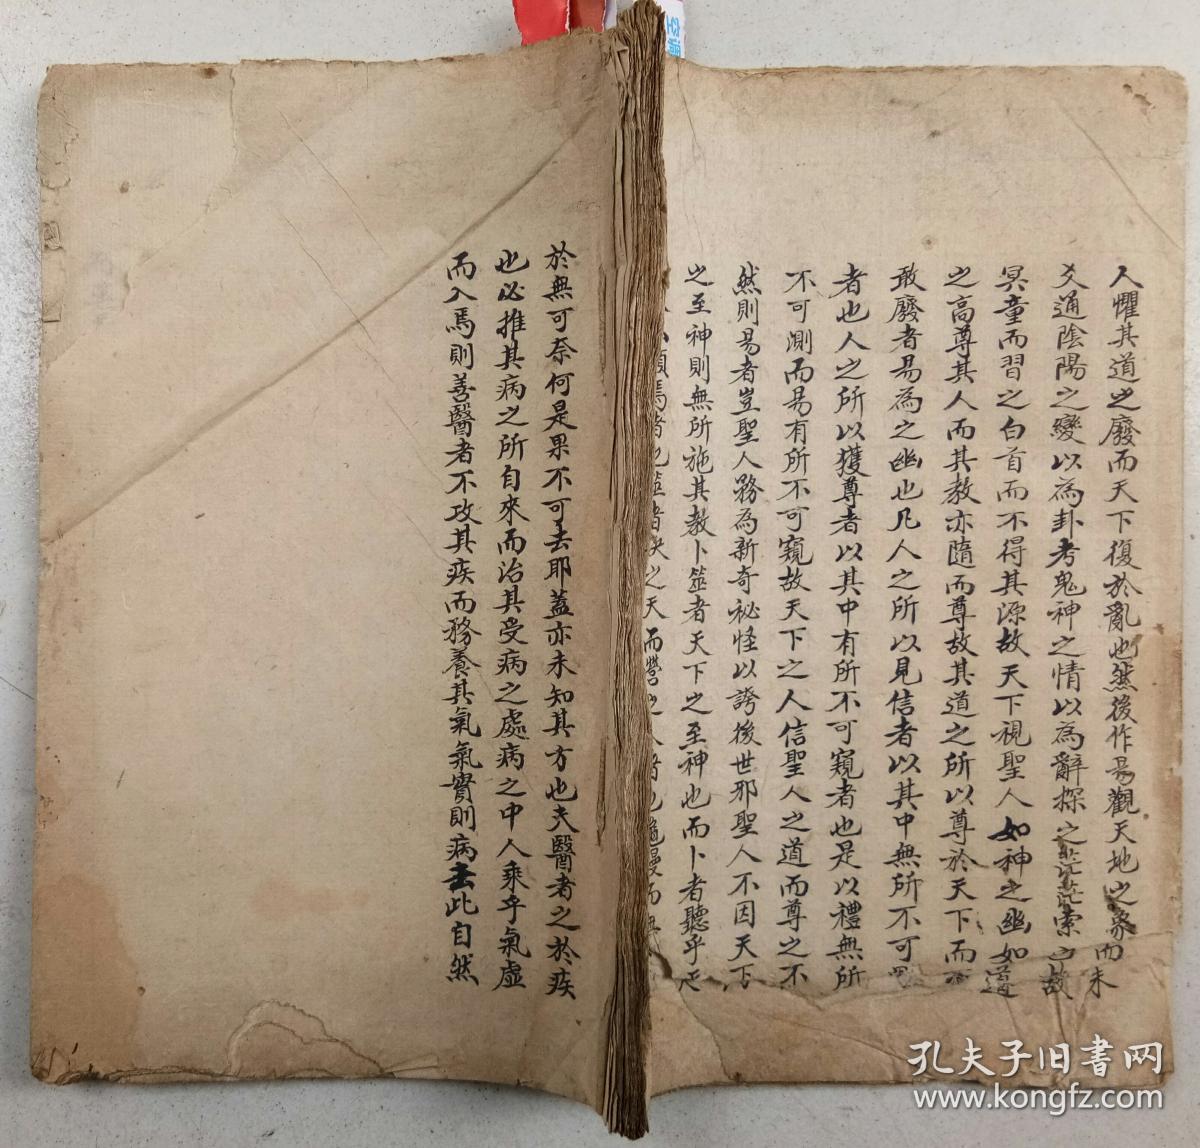 人懼其道之廢而天下復於亂也然後作易觀天地之象而未
爻通陰陽之變以為卦考鬼神之情以為辭探之茫茫索之故
冥童而習之白首而不得其源故天下視聖人如神之幽如道
之高尊其人而其教亦隨而尊故其道之所以尊於天下而
敢廢者易為之幽也凡人之所以見信者以其中無所不可
者也人之所以獲尊者以其中有所不可窺者也是以禮無所
不可測而易有所不可窺故天下之人信聖人之道而尊之不
然則易者豈聖人務為新奇祕怪以誇後世邪聖人不因天下
之至神則無所施其教卜筮者天下之至神也而卜者聽乎
者也筮者決之天而營之者也龜漫而無
於無可奈何是果不可去耶蓋亦未知其方也夫醫者之於疾
也必推其病之所自來而治其受病之處病之中人乘乎氣虛
而入焉則善醫者不攻其疾而務養其氣氣實則病去此自然
空调
孔夫子旧书网
www.kongfz.com